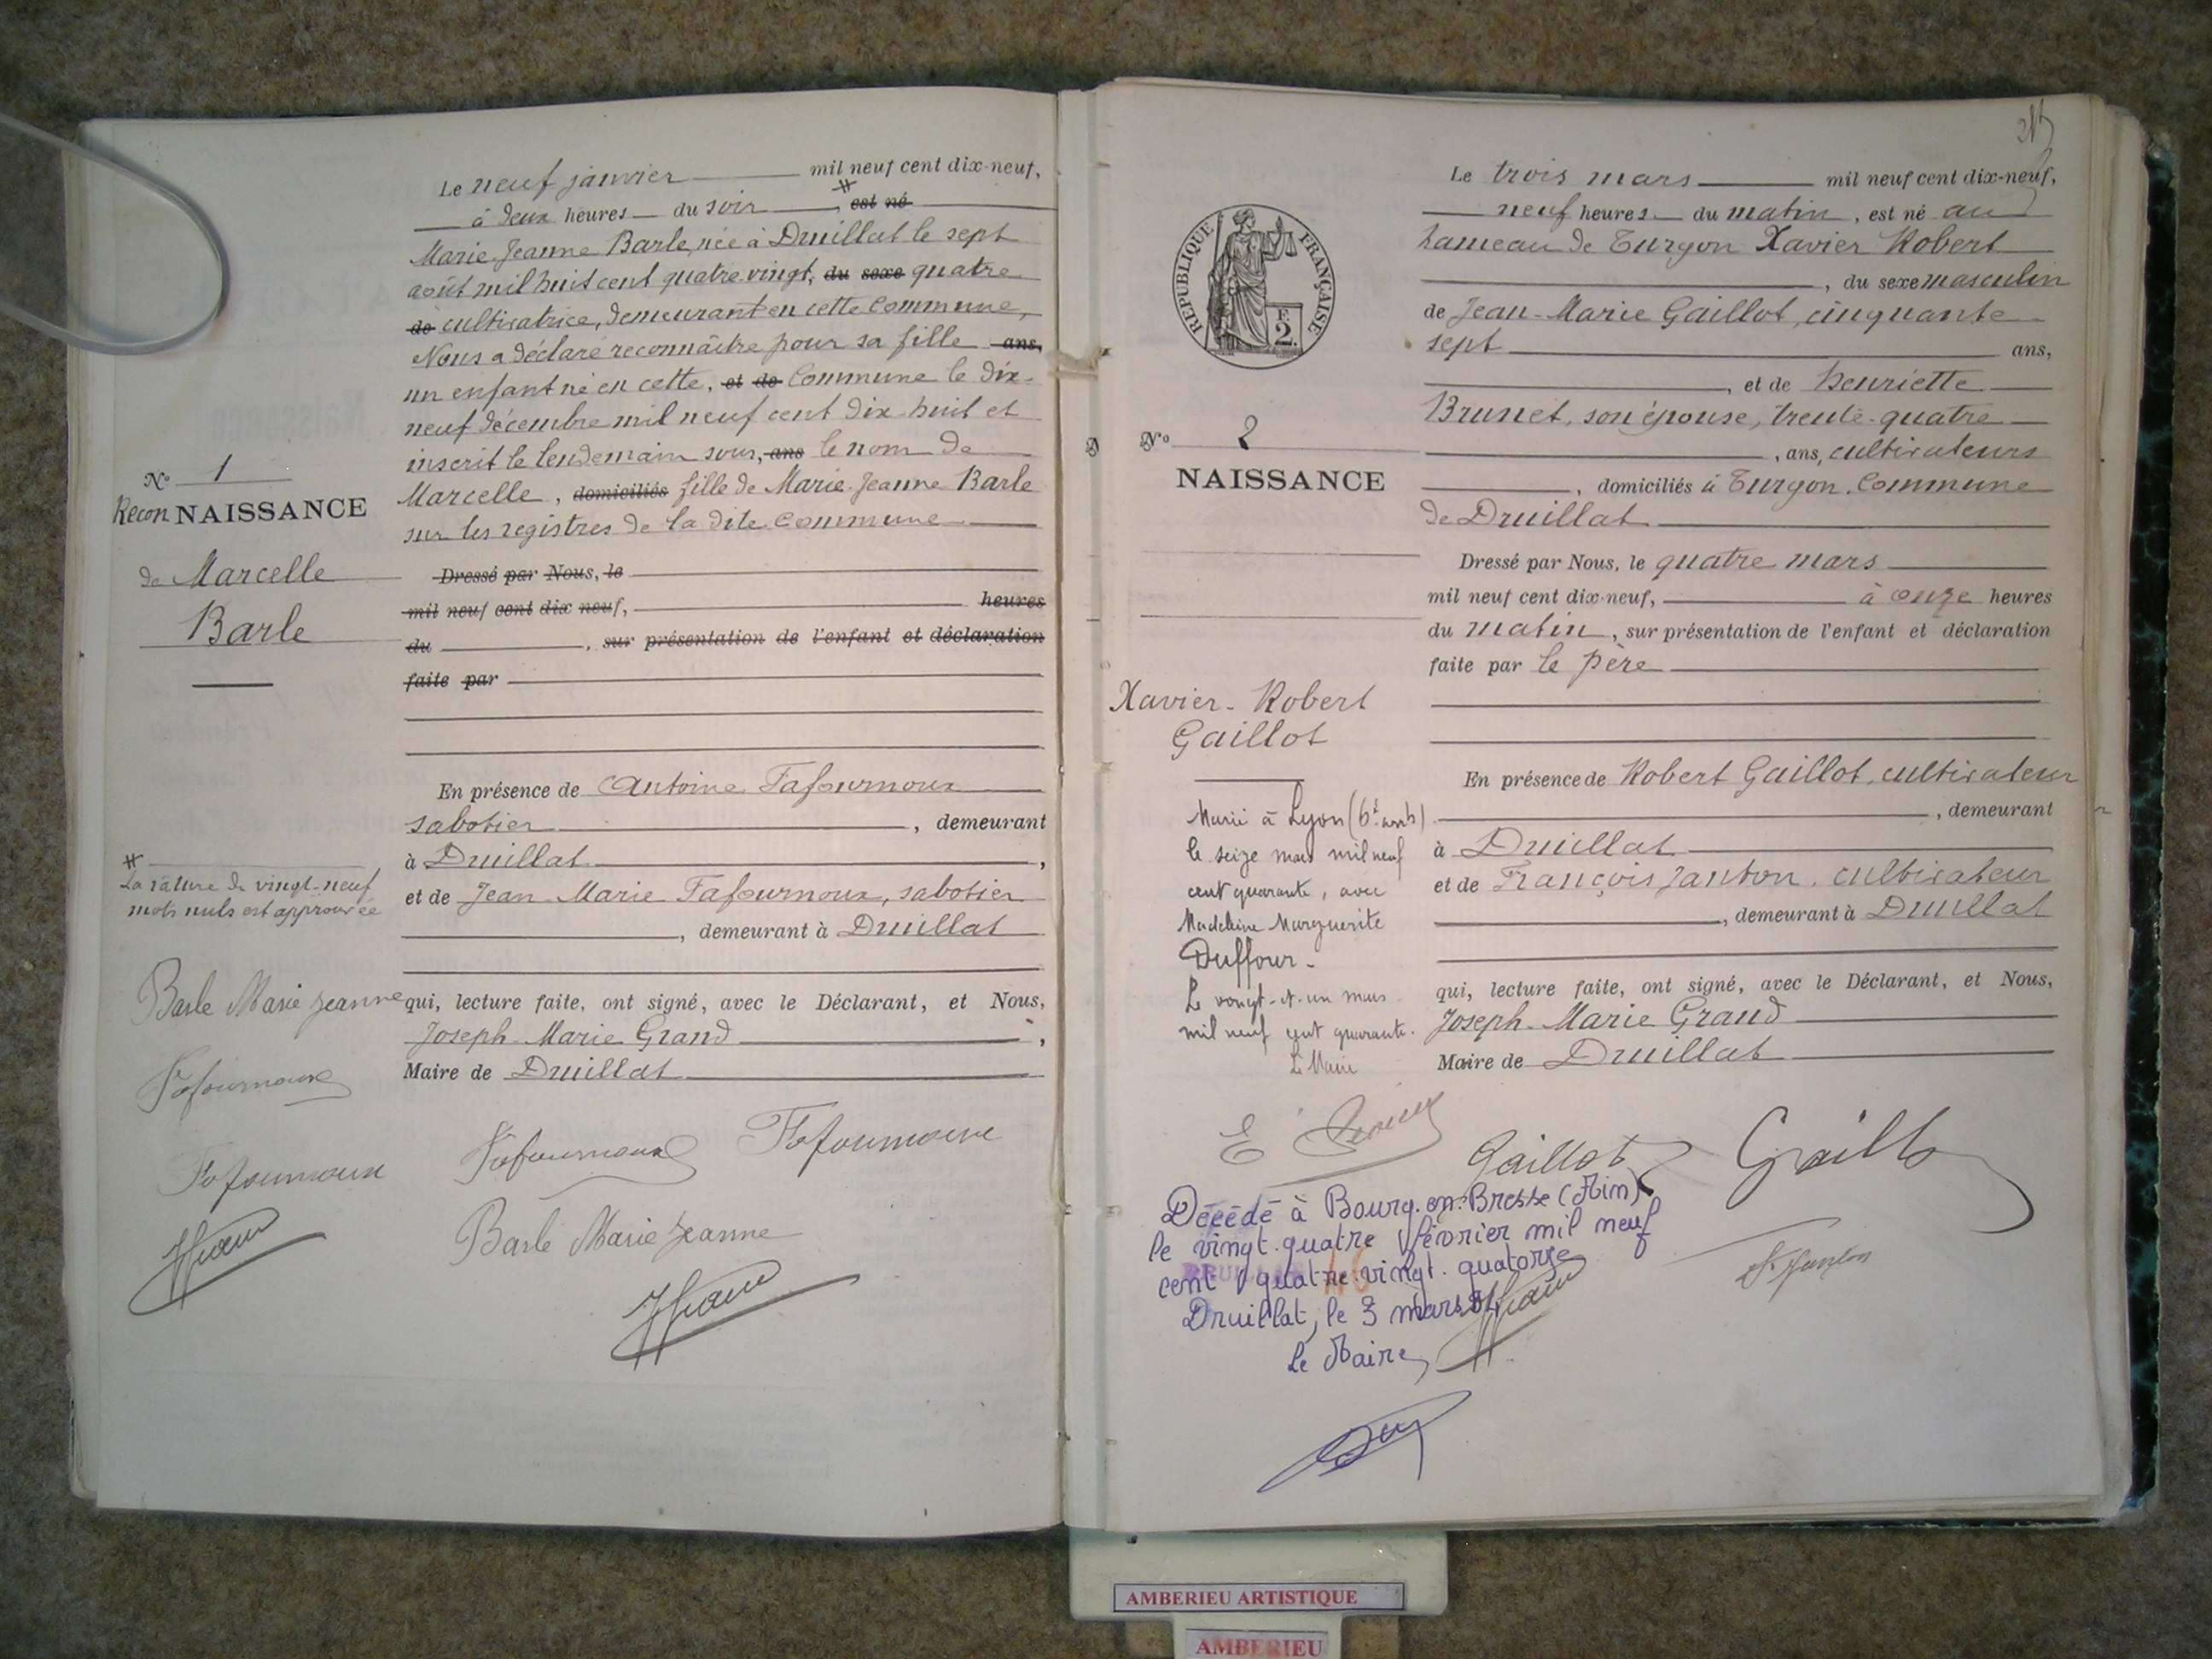 Le neuf janvier mil neuf cent dix-neuf,
à deux heures du soir # , est né
Marie Jeanne Barle, née à Druillat le sept
août mil huit cent quatre vingt, du sexe quatre
de cultivatrice, demeurant en cette Commune,
Nous a déclaré reconnaître pour sa fille ans,
un enfant né en cette, et de Commune le dix-
neuf décembre mil neuf cent dix huit et
inscrit le lendemain sous, ans le nom de
Marcelle, domiciliés fille de Marie Jeanne Barle
sur les registres de la dite commune
Dressé par Nous, le
mil neuf cent dix neuf, heures
du , sur présentation de l'enfant et déclaration
faite par
En présence de Antoine Fafournoux
sabotier , demeurant
à Druillat ,
et de Jean Marie Fafournoux, sabotier
, demeurant à Druillat
qui, lecture faite, ont signé, avec le Déclarant, et Nous,
Joseph Marie Grand ,
Maire de Druillat
N° 1
Recon NAISSANCE
de Marcelle
Barle
#
La râture de vingt-neuf
mots nuls est approuvée
Barle Marie Jeanne
Fafournoux
Fafournoux
Fafournoux Fafournoux
Barle Marie Jeanne
RÉPUBLIQUE FRANÇAISE
F.
2.
N° 2
NAISSANCE
Xavier-Robert
Gaillot
Marié à Lyon (6e arrdt)
le seize mars mil neuf
cent quarante, avec
Madeleine Marguerite
Duffour.
Le vingt-et-un mars
mil neuf cent quarante.
Le Maire
Le trois mars mil neuf cent dix-neuf,
neuf heures du matin, est né au
hameau de Turgon Xavier Robert
, du sexe masculin
de Jean-Marie Gaillot, cinquante
sept ans,
, et de Henriette
Brunet, son épouse, trente-quatre
, ans, cultivateurs
, domiciliés à Turgon. Commune
de Druillat
Dressé par Nous, le quatre mars
mil neuf cent dix-neuf, à onze heures
du matin, sur présentation de l'enfant et déclaration
faite par le père
En présence de Robert Gaillot, cultivateur
, demeurant
à Druillat
et de François Janton, cultivateur
, demeurant à Druillat
qui, lecture faite, ont signé, avec le Déclarant, et Nous,
Joseph-Marie Grand
Maire de Druillat
Gaillot Gaillot
Décédé à Bourg-en-Bresse (Ain)
le vingt-quatre février mil neuf
cent quatre-vingt-quatorze
Druillat, le 3 mars
Le Maire,
AMBERIEU ARTISTIQUE
AMBERIEU